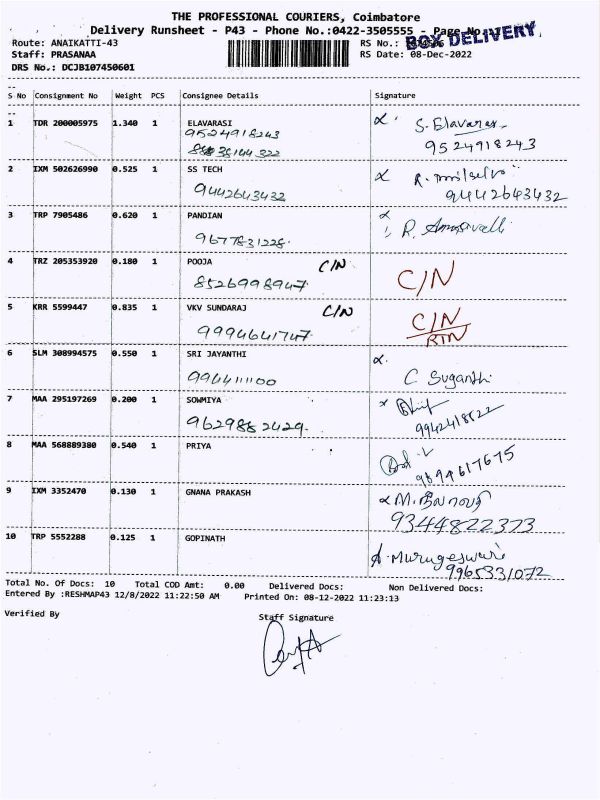 THE PROFESSIONAL COURIERS, Coimbatore
Delivery Runsheet - P43 - Phone No.:0422-3505555 - Page No.:1
BOX DELIVERY
Route: ANAIKATTI-43
RS No.:
Staff: PRASANAA
RS Date: 08-Dec-2022
DRS No.: DCJB107450601
S No Consignment No Weight PCS Consignee Details Signature
1 TDR 200005975 1.340 1 ELAVARASI
9524918243
S. Elavaras
9524918243
2 IXM 502626990 0.525 1 SS TECH
9442643432
9442643432
3 TRP 7905486 0.620 1 PANDIAN
9677831228.
4 TRZ 205353920 0.180 1 POOJA C/N
8526998947
C/N
5 KRR 5599447 0.835 1 VKV SUNDARAJ C/N
9994641747
C/N
RTN
6 SLM 308994575 0.550 1 SRI JAYANTHI
994411100
C Suganthi
7 MAA 295197269 0.200 1 SOWMIYA
9629882429.
9942418822
8 MAA 568889380 0.540 1 PRIYA
9894617675
9 IXM 3352470 0.130 1 GNANA PRAKASH
9344822323
10 TRP 5552288 0.125 1 GOPINATH
Murugeswari
9965331072
Total No. Of Docs: 10 Total COD Amt: 0.00 Delivered Docs: Non Delivered Docs:
Entered By :RESHMAP43 12/8/2022 11:22:50 AM Printed On: 08-12-2022 11:23:13
Verified By
Staff Signature